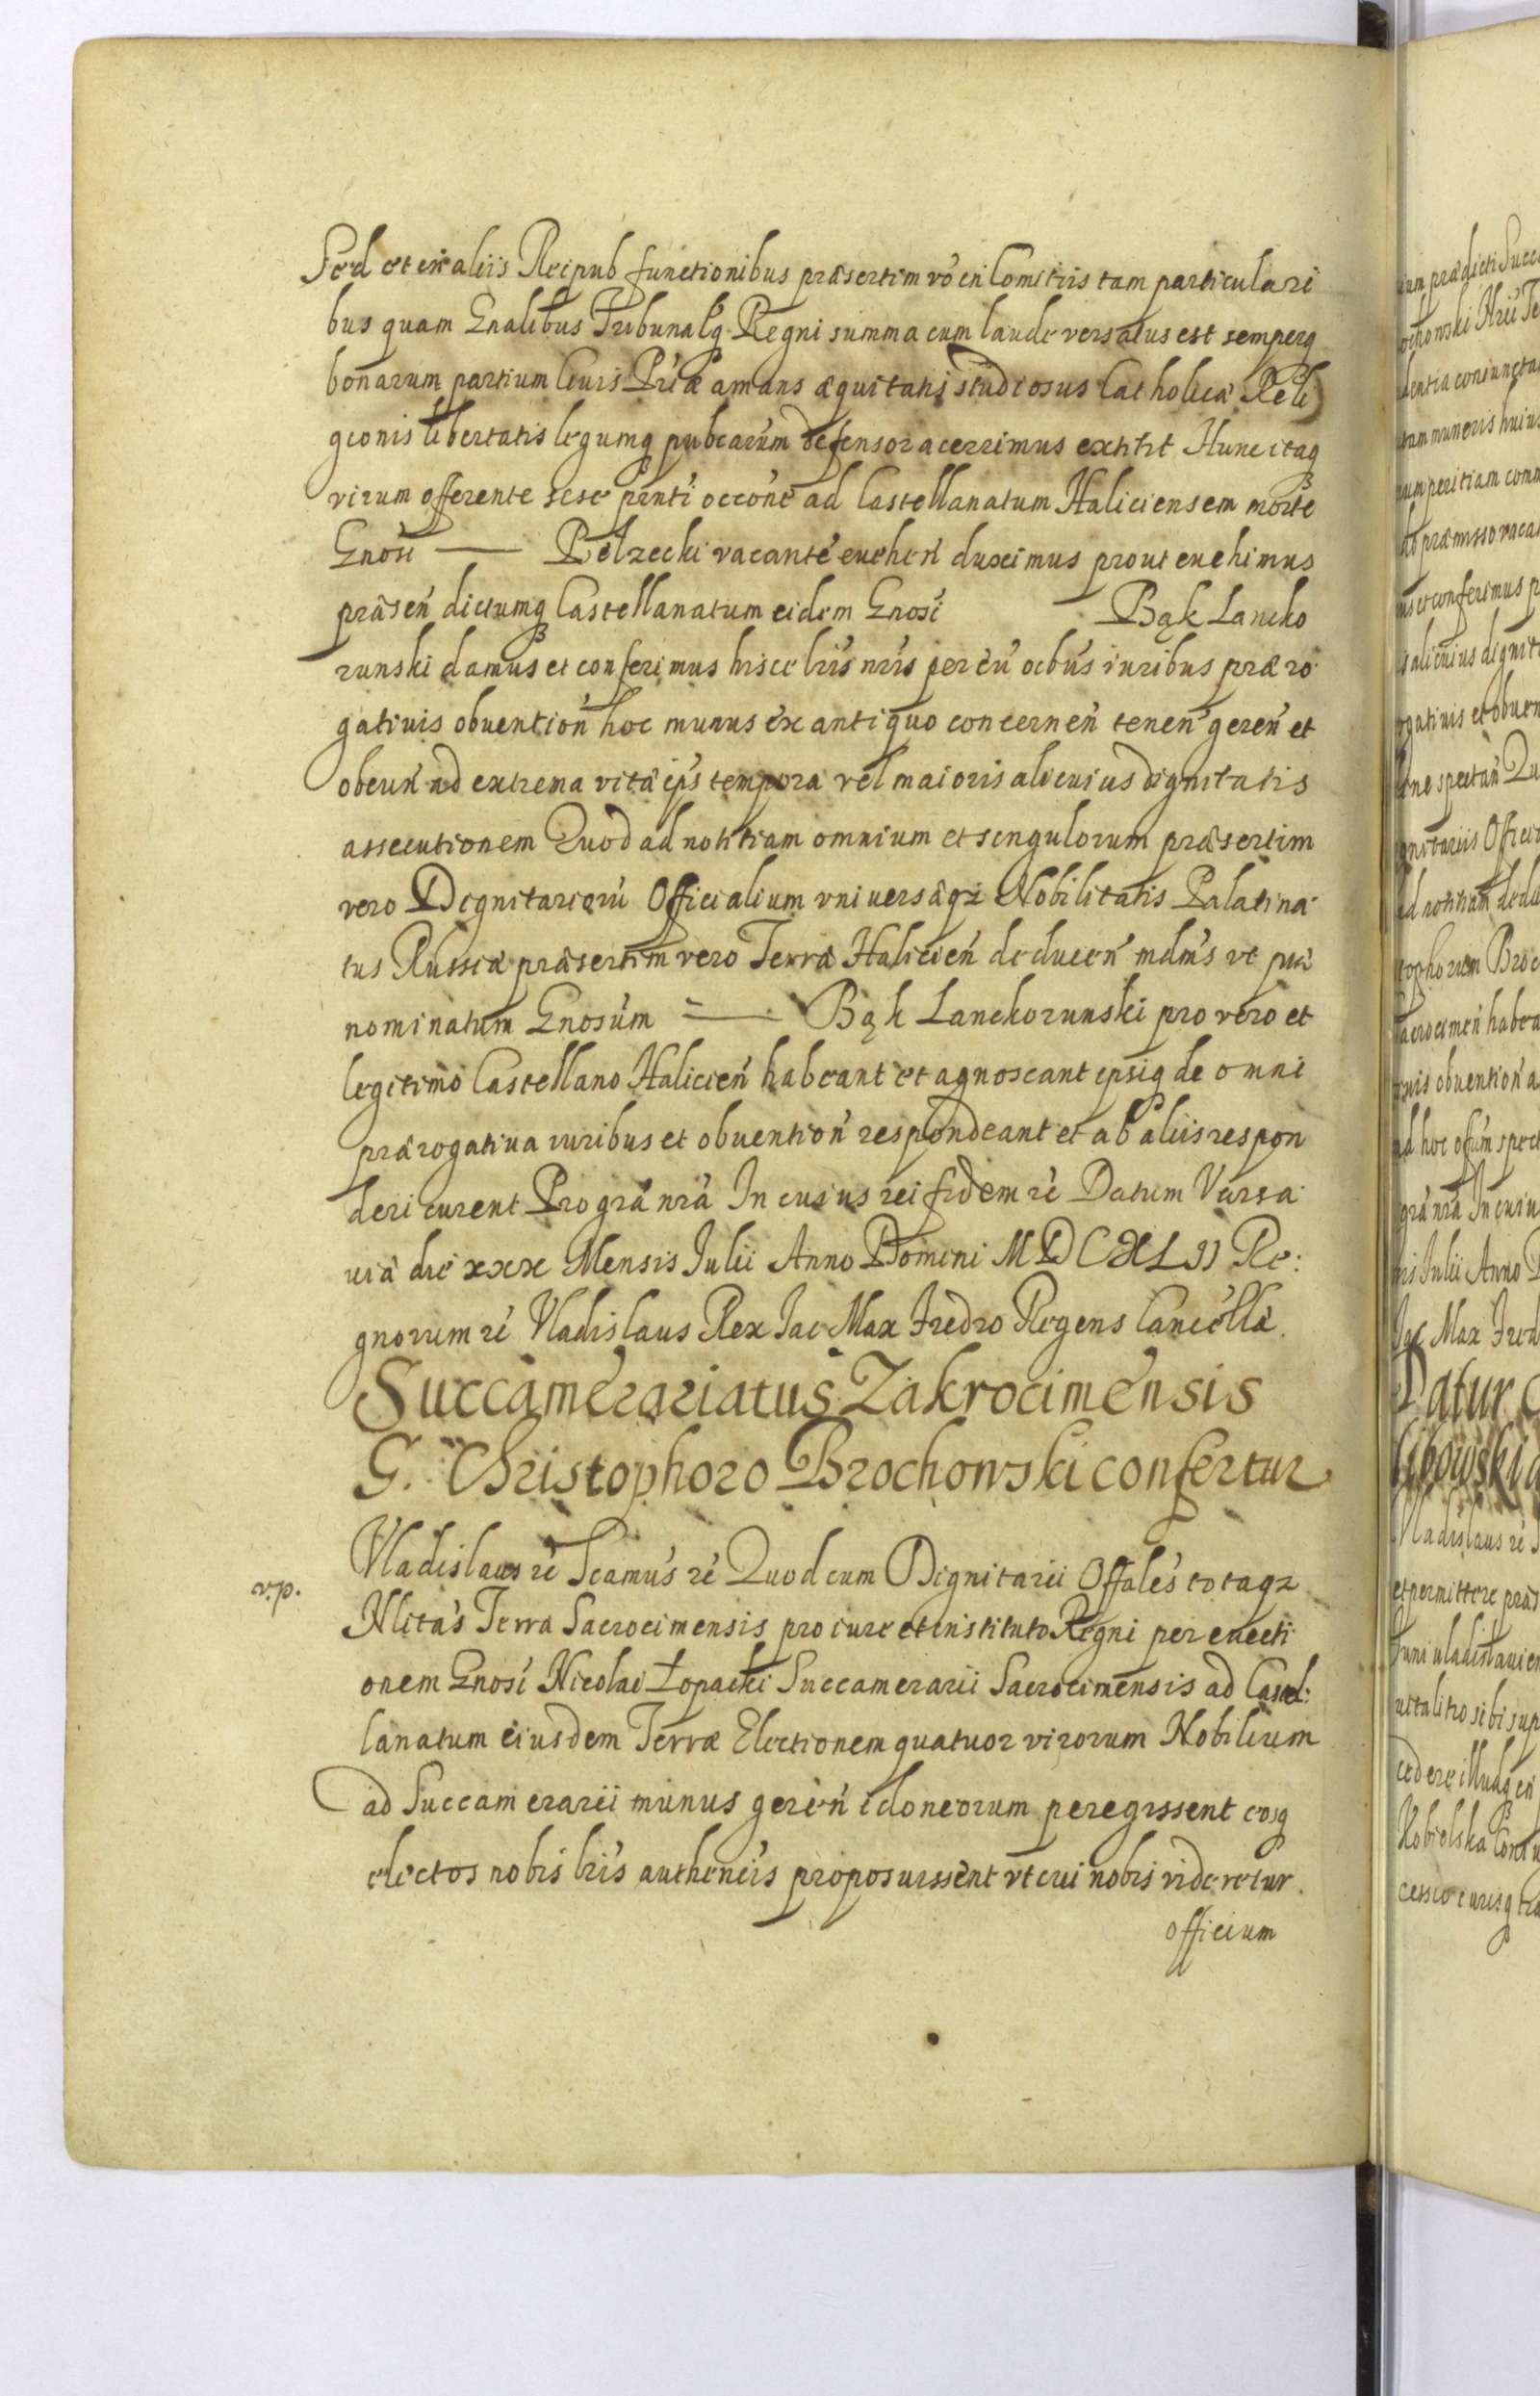 Sed et in aliis Reipub functionibus præsertim vo in Comitiis tam particulari
bus quam Gnalibus Tribunalq Regni summa cum laude versatus est semperq
bonarum partium Civis Priæ amans æquitatis studiosus Catholicæ Reli
gionis libertatis legumq pubcarum defensor acerrimus extitit Hunc itaq
virum offerente sese pnti occone ad Castellanatum Haliciensem morte
Gnosi — Belzecki vacante evehen duximus prout evehimus
præsen dictumq Castellanatum eidem Gnosi Bąk Lancko
runski damus et conferimus hisce lris nris per eu ocbus iuribus præro
gativis obvention hoc munus ex antiquo concernen tenen geren et
obeun ad extrema vitæ eps tempora vel maioris alicuius dignitatis
assecutionem Quod ad notitiam omnium et singulorum præsertim
vero Dignitarioru Officialium universæqz Nobilitatis Palatina
tus Russiæ præsertim vero Terræ Halicien deducen mdms ut præ
nominatum Gnosum — Bąk Lanckorunski pro vero et
legitimo Castellano Halicien habeant et agnoscant ipsiq de omni
prærogativa iuribus et obvention respondeant et ab aliis respon
deri curent Pro gra nra In cuius rei fidem rc Datum Varsa
viæ die xxx Mensis Iulii Anno Domini MDCXLII Re:
gnorum rc Vladislaus Rex Iac Max Fredro Regens Cancellæ.
Succamerariatus Zakrocimensis
G. Christophoro Brochowski confertur
v.p.
Vladislaus rc Scamus rc Quod cum Dignitarii Offales totaqz
Nlitas Terræ Sacrocimensis pro iure et instituto Regni per evecti
onem Gnosi Nicolai Łopacki Succamerarii Sacrocimensis ad Castel:
lanatum eiusdem Terræ Electionem quatuor virorum Nobilium
ad Succamerarii munus geren idoneorum peregissent eosq
electos nobis lris authencis proposuissent ut cui nobis videretur.
officium